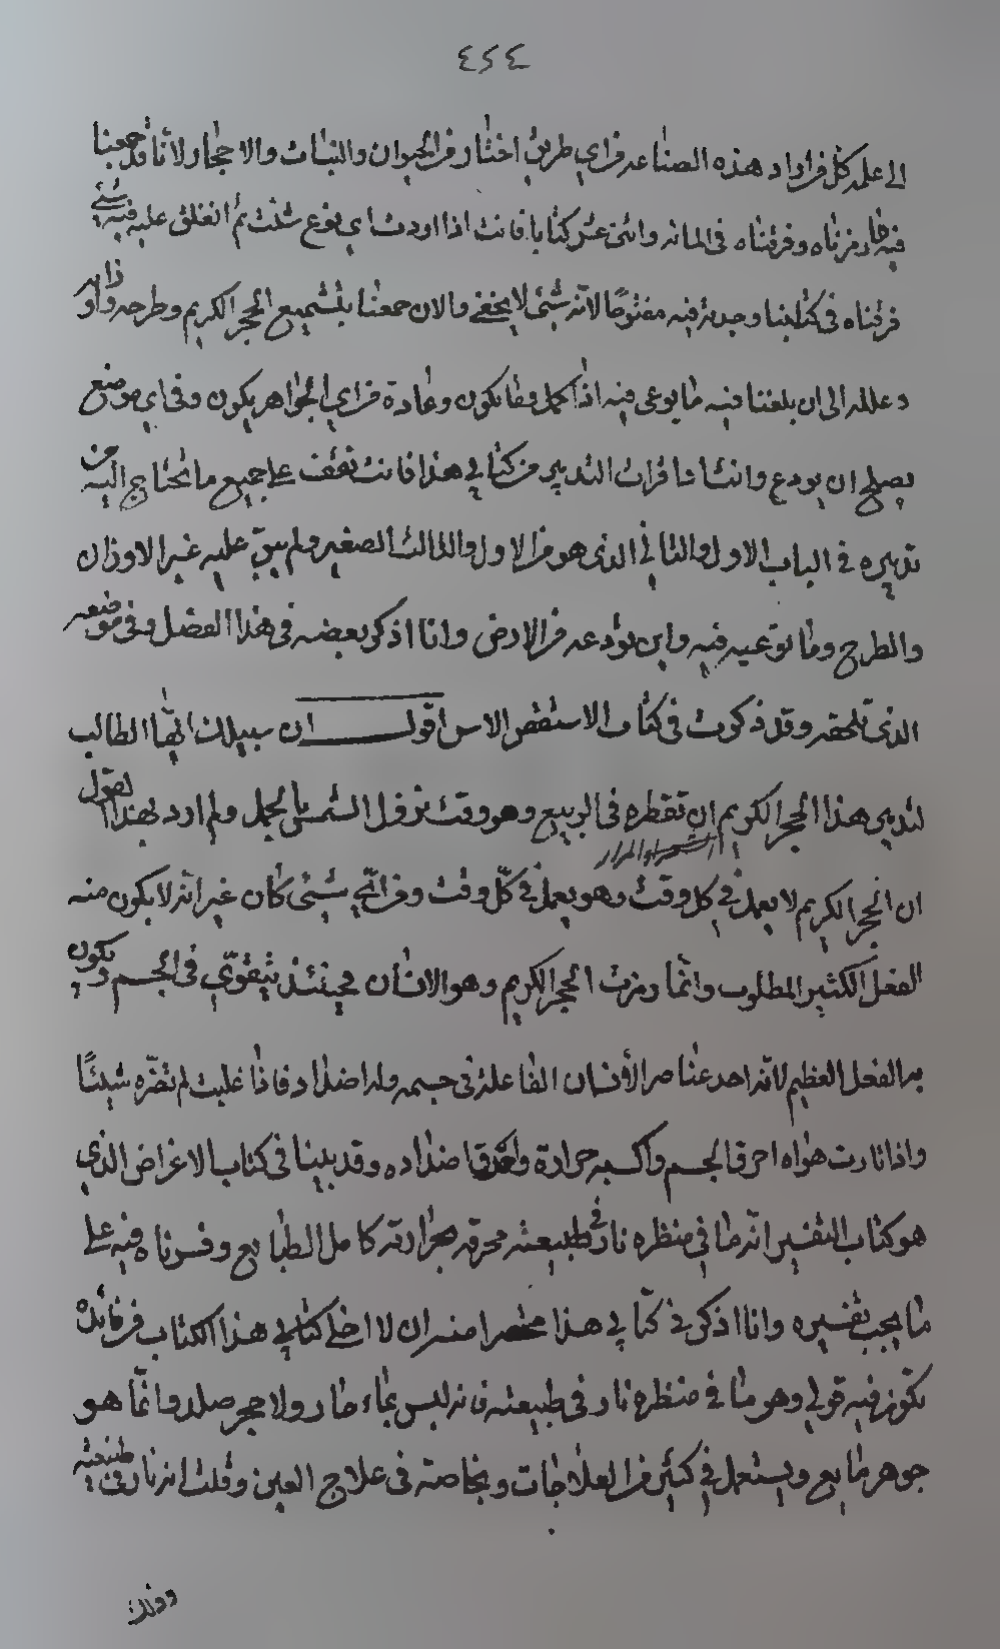 ٤٢٤
الى علمه كل من اراد هذه الصناعه من اي طريق اختار من الحيوان والنبات والاحجار لانا قد جمعنا
فيه ما رمزناه وفرقناه في المائه واثنى عشر كتابا فانت اذا اردت اي نوع شئت ثم انغلق عليه فيه شئ
فرقناه في كتابنا وجدته فيه مفتوحًا لانه شئ لا يخفى والان جمعنا بتشميع الحجر الكريم وطرحه
الى ان بلغنا فيه ما يوعى فيه اذا كمل وما يكون وعاده من اي الجواهر يكون وفي اي موضع
يصلح ان يودع وانت اذا قرات التدبير من كتابي هذا فانت تقف على جميع ما تحتاج اليه من
تدبيره في الباب الاول والثاني الذى هو من الاول والثالث الصغير ولم يبق عليه غير الاوزان
والطرح وما توعيه فيه واين تودعه من الارض وانا اذكر بعضه في هذا الفصل وفي موضعه
الذى تلحقه وقد ذكرت في كتاب الاستقص الاس اقول ان سبيلك ايها الطالب
لتدبير هذا الحجر الكريم ان تقطره في الربيع وهو وقت نزول الشمس بالحمل ولم ارد بهذا القول
ان الحجر الكريم لا يعمل في كل وقت وهو يعمل في كل وقت ومن اي شئ كان غير انه لا يكون منه
الفعل الكثير المطلوب وانما رمزت الحجر الكريم وهو الانسان فحينئذ يتقوى في الجسم ويكون
به الفعل العظيم لانه احد عناصر الانسان الفاعلة في جسمه وله اضداد فاذا غلبت لم تضره شيئًا
واذا ثارت هواه احرق الجسم واكسبه حرارة اضداده وقد بينا في كتاب الاغراض الذي
هو كتاب التفسير انه ما في منظره نار في طبيعته محرقه بحرارته كامل الطبايع وفسرناه فيه على
ما يجب تفسيره وانا اذكر في كتابي هذا مختصرا منه ان لا اخلي كتابي هذا الكتاب من فائدة
تكون فيه قولي وهو ما في منظره نار في طبيعته فانه ليس بماء حار ولا حجر صلد وانما هو
جوهر مايع ويستعمل في كثير من العلاجات وبخاصة في علاج العين وقلت انه نار في طبيعته
وذلك